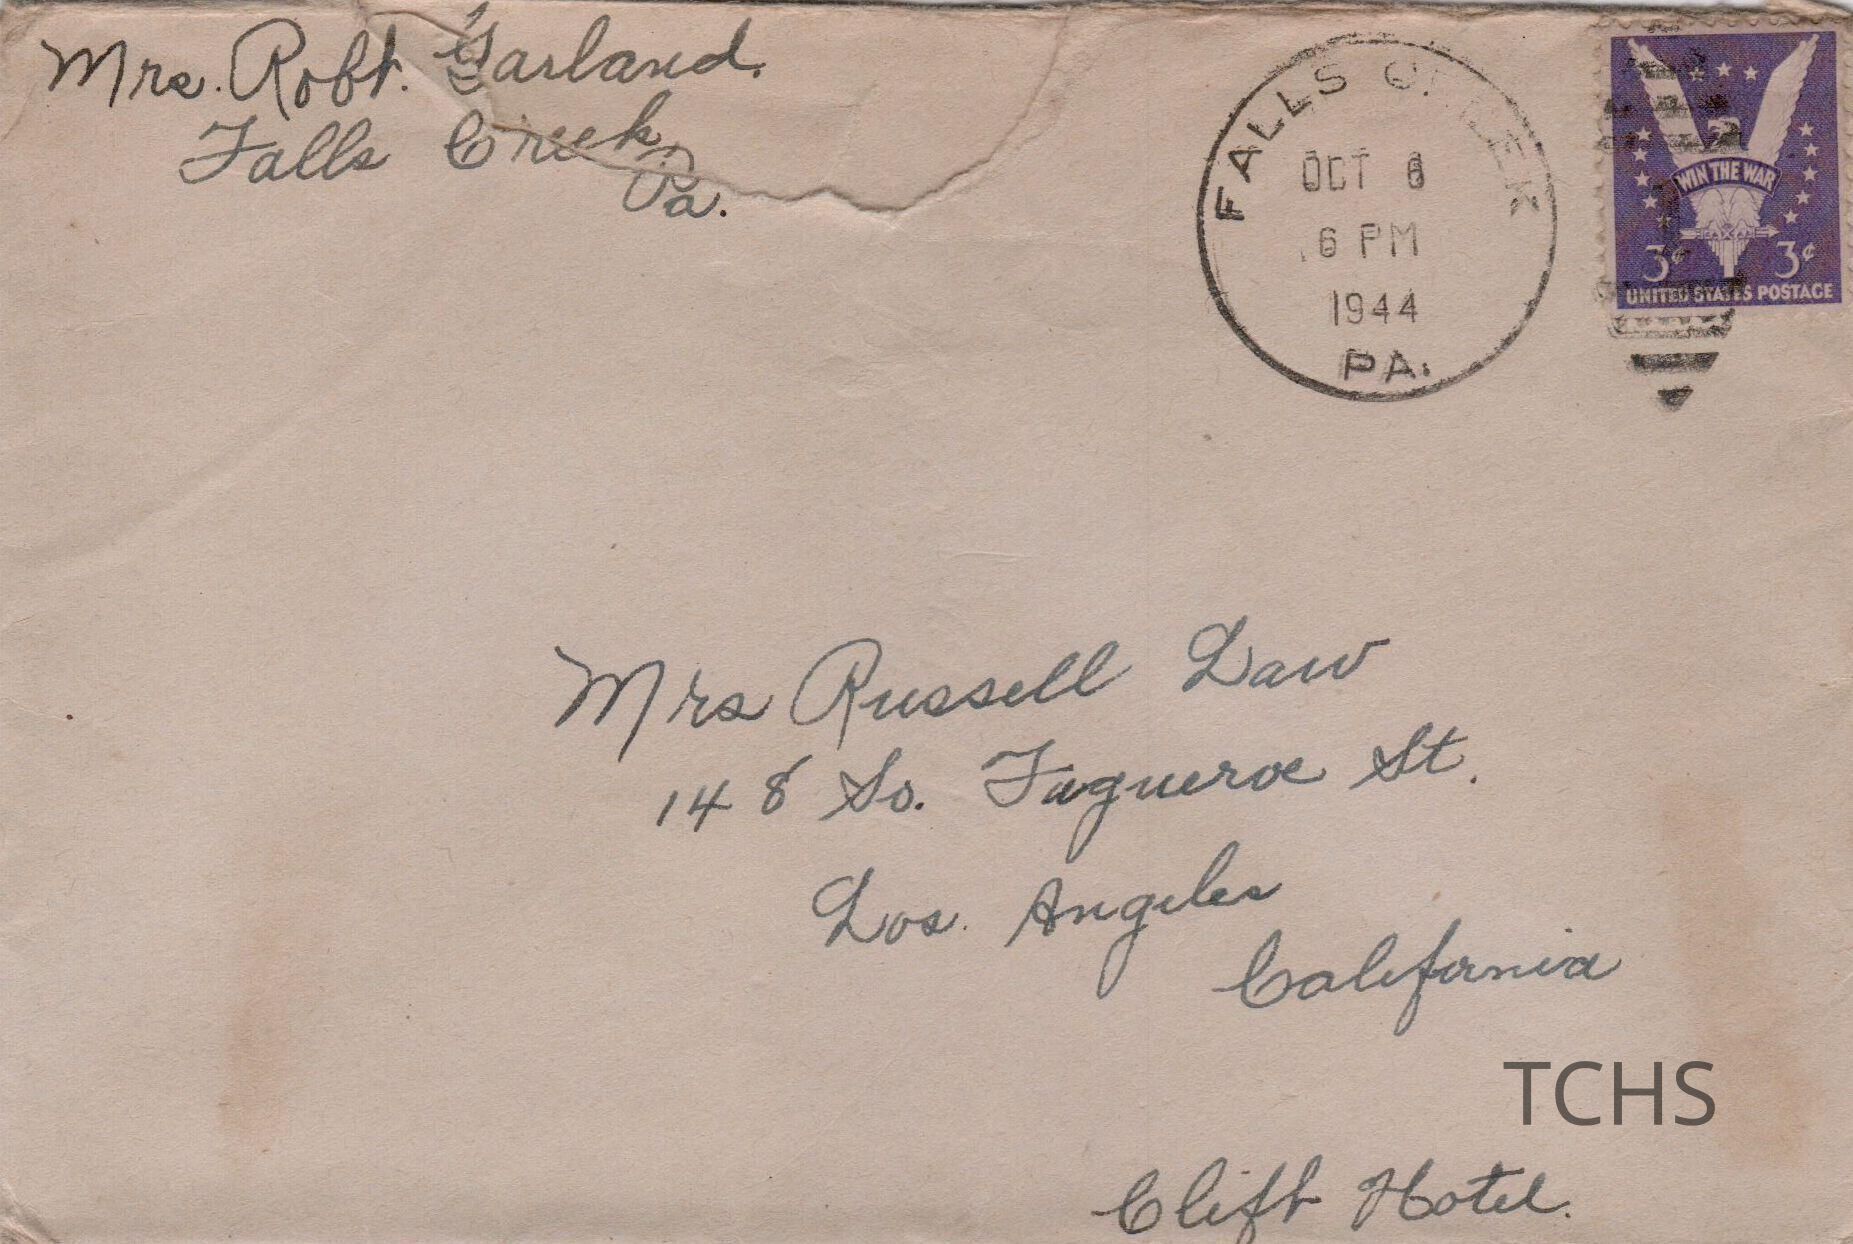 Mrs. Robt. Garland.
Falls Creek,
Pa.
FALLS CREEK
OCT 6
6 PM
1944
PA.
WIN THE WAR
3¢ 3¢
UNITED STATES POSTAGE
Mrs Russell Law
148 So. Fugueroe St.
Los. Angeles
California
TCHS
Clift Hotel.